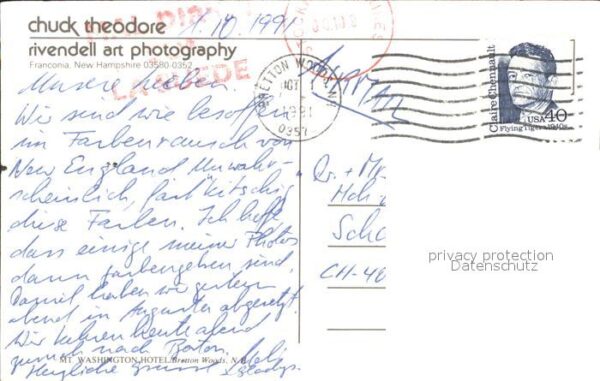 chuck theodore
rivendell art photography
Franconia, New Hampshire 03580-0352
7.10.1991
LAGUEDE
BRETTON WOODS
OCT
1991
0357
AIRMAIL
Claire Chennault
Flying Tigers 1940s
USA 40
Unsere Lieben.
Wir sind wie besoffen
im Farbenrausch von
New England. Unwahr-
scheinlich, fast kitschig
diese Farben. Ich hoffe
dass einige meiner Photos
dann farbengeben sind.
Damit haben wir gestern
abend in Augusta abgesetzt.
Wir kehren heute abend
zurück nach Boston.
Herzliche Grüsse
Gladys.
Dr. + Mr
Sche
CH-40
privacy protection
Datenschutz
MT. WASHINGTON HOTEL, Bretton Woods, N.H.